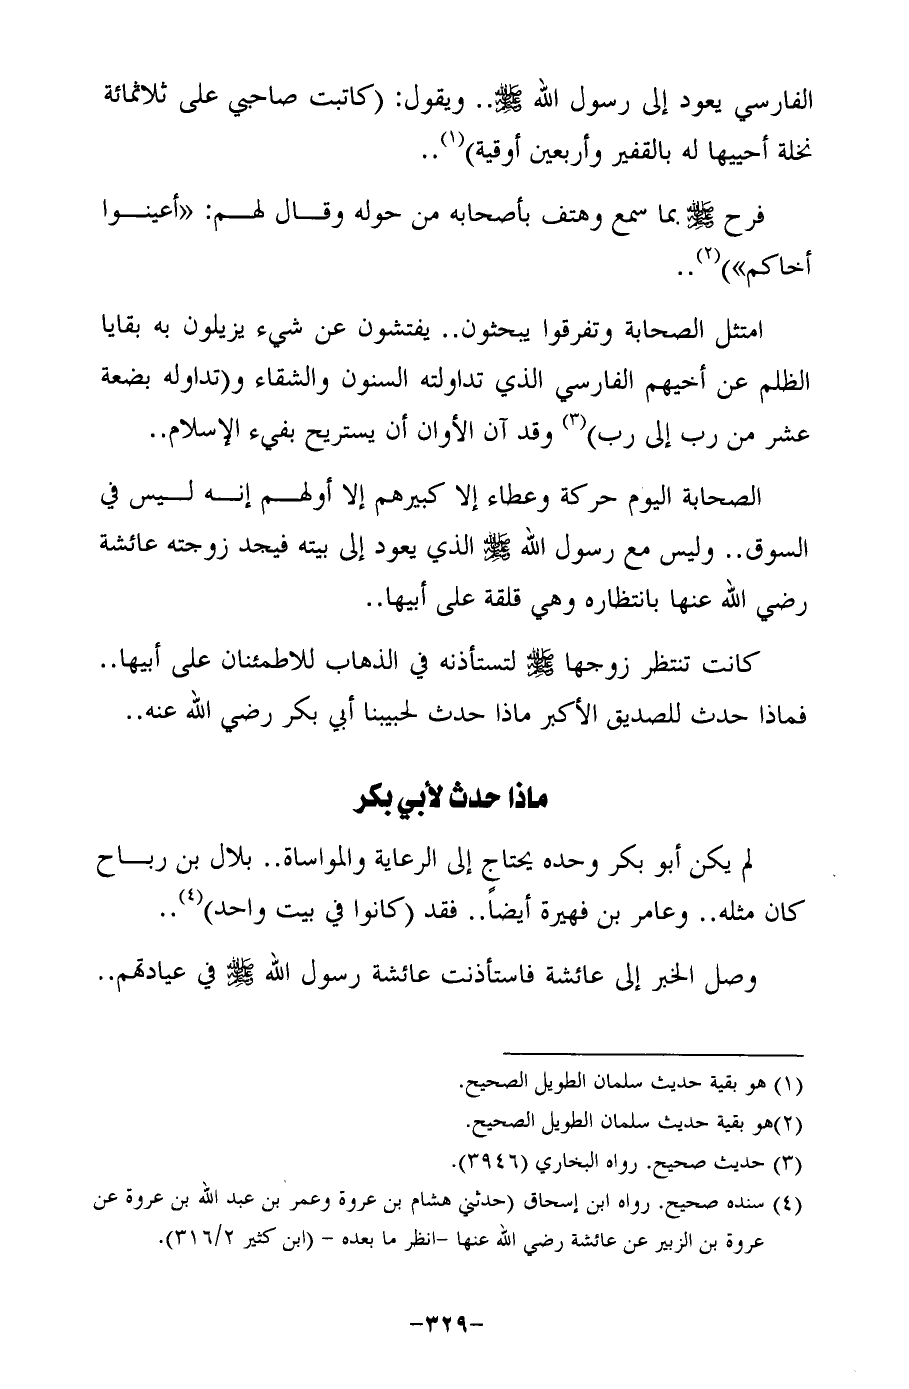 الفارسي يعود إلى رسول الله ﷺ.. ويقول: (كاتبت صاحبي على ثلاثمائة
نخلة أحييها له بالفقير وأربعين أوقية)(١)..
فرح ﷺ بما سمع وهتف بأصحابه من حوله وقال لهم: «أعينوا
أخاكم»)(٢)..
امتثل الصحابة وتفرقوا يبحثون.. يفتشون عن شيء يزيلون به بقايا
الظلم عن أخيهم الفارسي الذي تداولته السنون والشقاء و(تداوله بضعة
عشر من رب إلى رب)(٣) وقد آن الأوان أن يستريح بفيء الإسلام..
الصحابة اليوم حركة وعطاء إلا كبيرهم إلا أولهم إنه ليس في
السوق.. وليس مع رسول الله ﷺ الذي يعود إلى بيته فيجد زوجته عائشة
رضي الله عنها بانتظاره وهي قلقة على أبيها..
كانت تنتظر زوجها ﷺ لتستأذنه في الذهاب للاطمئنان على أبيها..
فماذا حدث للصديق الأكبر ماذا حدث لحبيبنا أبي بكر رضي الله عنه..
ماذا حدث لأبي بكر
لم يكن أبو بكر وحده يحتاج إلى الرعاية والمواساة.. بلال بن رباح
كان مثله.. وعامر بن فهيرة أيضاً.. فقد (كانوا في بيت واحد)(٤)..
وصل الخبر إلى عائشة فاستأذنت عائشة رسول الله ﷺ في عيادتهم..
(١) هو بقية حديث سلمان الطويل الصحيح.
(٢)هو بقية حديث سلمان الطويل الصحيح.
(٣) حديث صحيح. رواه البخاري (٣٩٤٦).
(٤) سنده صحيح. رواه ابن إسحاق (حدثني هشام بن عروة وعمر بن عبد الله بن عروة عن
عروة بن الزبير عن عائشة رضي الله عنها -انظر ما بعده - (ابن كثير ٣١٦/٢).
-٣٢٩-